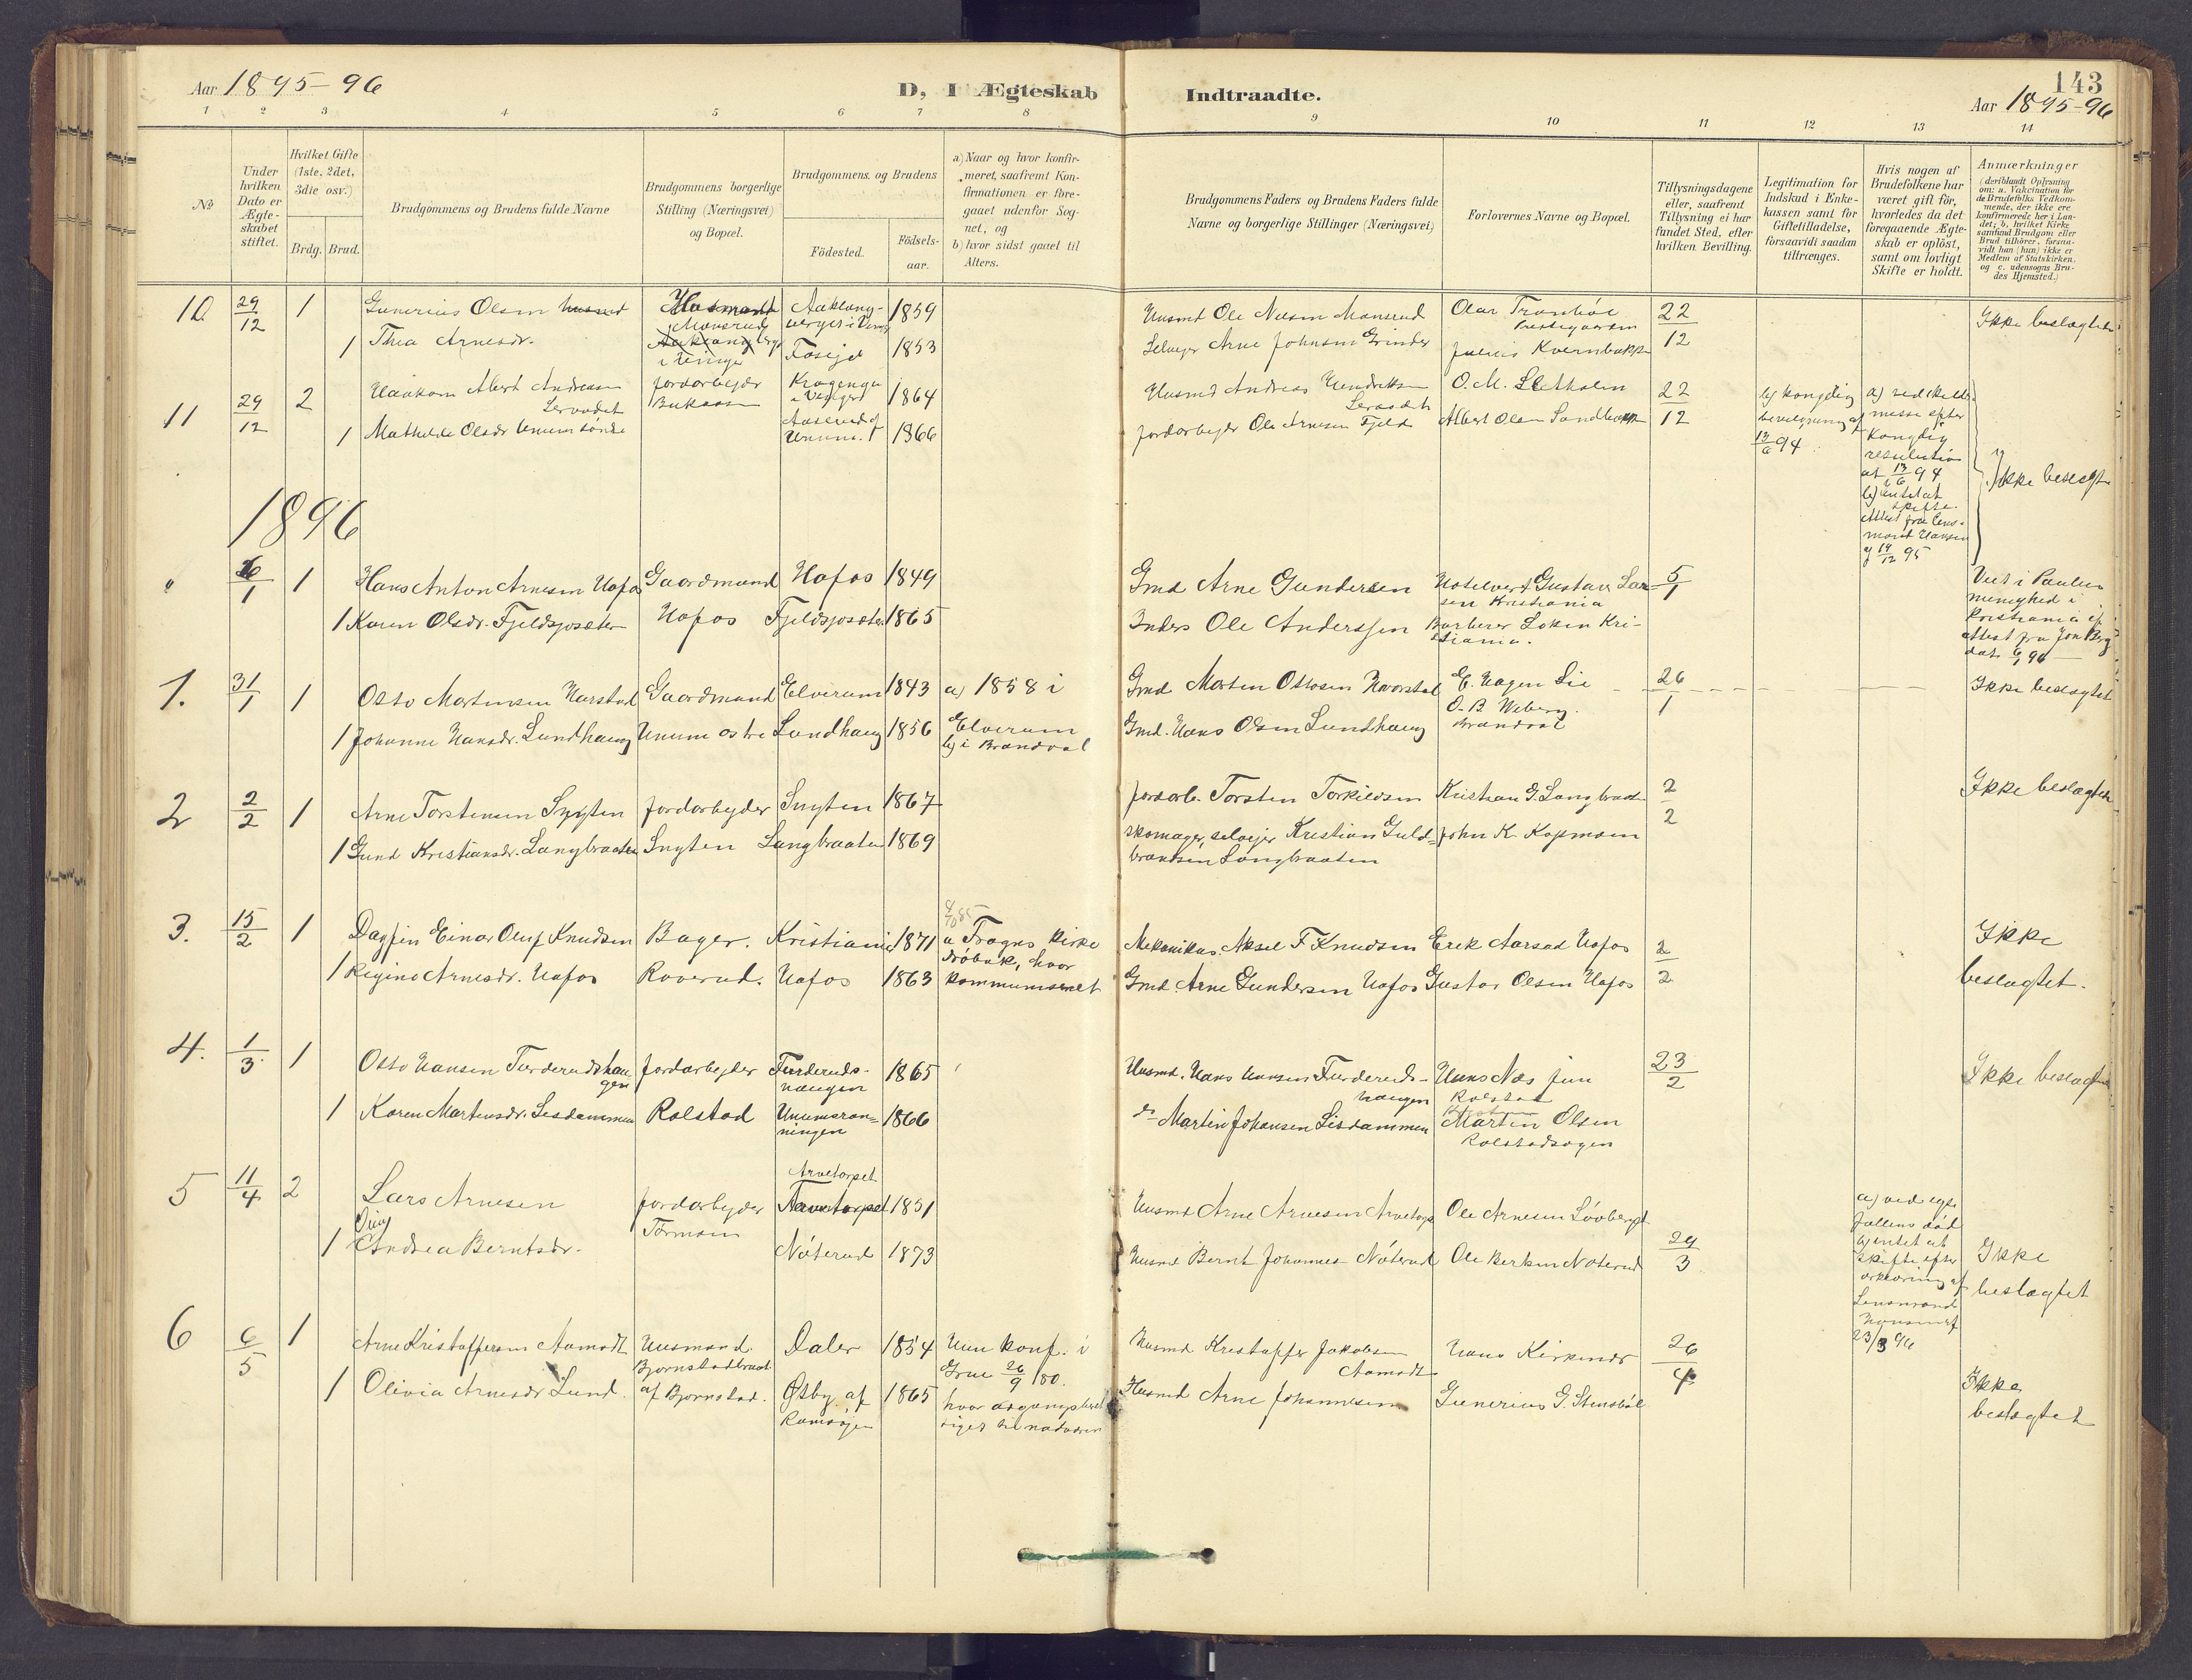 Aar 1895-96
D, I Ægteskab Indtraadte.
143
Aar 1895-96
1 2 3 4 5 6 7 8 9 10 11 12 13 14
No
Under hvilken Dato er Ægteskabet stiftet.
Hvilket Gifte (1ste, 2det, 3die osv.)
Brdg. Brud.
Brudgommens og Brudens fulde Navne
Brudgommens borgerlige Stilling (Næringsvei) og Bopæl.
Brudgommens og Brudens
Födested.
Födselsaar.
a) Naar og hvor konfirmeret, saafremt Konfirmationen er foregaaet udenfor Sognet, og
b) hvor sidst gaaet til Alters.
Brudgommens Faders og Brudens Faders fulde Navne og borgerlige Stillinger (Næringsvei)
Forlovernes Navne og Bopæl.
Tillysningsdagene eller, saafremt Tillysning ei har fundet Sted, efter hvilken Bevilling.
Legitimation for Indskud i Enkekassen samt for Giftetilladelse, forsaavidt saadan tiltrænges.
Hvis nogen af Brudefolkene har været gift för, hvorledes da det foregaaende Ægteskab er oplöst, samt om lovligt Skifte er holdt.
Anmærkninger
(deriblandt Oplysning om: a. Vakcination for de Brudefolks Vedkommende, der ikke ere konfirmerede her i Landet; b. hvilket Kirkesamfund Brudgom eller Brud tilhörer, forsaavidt han (hun) ikke er Medlem af Statskirken, og c. udensogns Brudes Hjemsted.)
10 29/12 1 Gunerius Olsen 1859 Husmd Ole Olsen Monsrud Olav 22/12 Ikke beslægtet
1 Thea Arnesdr. 1853 Selveier Arne Johnsen Grinder Julius Kvernbakken
11 29/12 2 Haakon Albert Andreasen jordarbejder 1864 Husmd Andreas Hendriksen O. M. Sletholen 22/12 b) kongelig bevilgning af 13/6 94
1 Mathilde Olsdr 1866 jordarbejder Ole Arnesen Fjeld Albert Olsen Sandbakken
a) ved skilsmisse efter kongelig resolution af 13/6 94
b) intet at skifte. Attest fra lensmand Hansen af 14/12 95
Ikke beslægt
1896
" 6/1 1 Hans Anton Arnesen Hofos Gaardmand Hofos 1849 Gmd Arne Gundersen Hotelvert Gustav Larsen Kristiania 5/1
1 Karen Olsdr. Fjeldsjosæter Hofos Fjeldsjosæter 1865 Inders Ole Anderssen Barberer Loken Kristiania.
Viet i Paulus menighed i Kristiania ef attest fra Jon Berg dat. 6/1 96
1. 31/1 1 Otto Mortensen Harstad Gaardmand Elverum 1843 a) 1858 i Elverum Gmd Morten Ottosen E. Hagen Lie 26/1 Ikke beslægtet
1 Johanne Hansdr. Lundhaug Unum ostre Lundhaug 1856 b) i Brandval Gmd. Hans Olsen Lundhaug O. B. Weberg. Brandval
2 2/2 1 Arne Torstensen Snyten jordarbejder Snyten 1867 jordarb. Torsten Torkildsen Kristian G. Langbraaten 2/2 Ikke beslægtet
1 Gund Kristiansdr. Langbraaten Snyten Langbraaten 1869 skomager, selvejer Kristian Guldbrandsen Langbraaten John K. Kopmoen
3. 15/2 1 Dagfin Einar Oluf Knudsen Bager. Kristiania 1871 a Frogns kirke Drøbak, hvor Mekanikus. Aksel F Knudsen Erik Aarsad Hofos 2/2 Ikke beslægtet.
1 Regine Arnesdr. Hofos Roverud. Hofos 1863 Gmd. Arne Gundersen Hofos Gustav Olsen Hofos
4. 1/3 1 Otto Hansen Furderudshaugen jordarbejder Furderudshaugen 1865 Husmd. Hans Hansen Furderudshaugen Hans Næs jun Rolstad 23/2 Ikke beslægtet
1 Karen Martinsdr. Lisdammen Rolstad 1866 do Martin Johansen Lisdammen Martin Olsen Rolstadsagen
5 11/4 2 Lars Arnesen jordarbejder Arnetorpet 1851 Husmd Arne Arnesen Arnetorp Ole Arnesen Lövberget 29/3
1 Andrea Berntsdr. Tormoen Nöterud 1873 Husmd Bernt Johannes Nöterud Ole Nöterud
a) ved egtefællens död
b) intet at skifte efter erklæring af Lensmand Hansen af 23/3 96
Ikke beslægtet
6 6/5 1 Arne Kristoffersen Aamodt Husmand. Daler 1854 Hun konf. i Grue 26/9 80. Husmd Kristoffer Jakobsen Aamodt Hans Kirkmoen 26/4
1 Olivia Arnesdr Lund. Bjornstadbraat af Bjornstad. Østby af 1865 Husmd Arne Johannesen Gunerius G. Stensböl
Ikke beslægtet